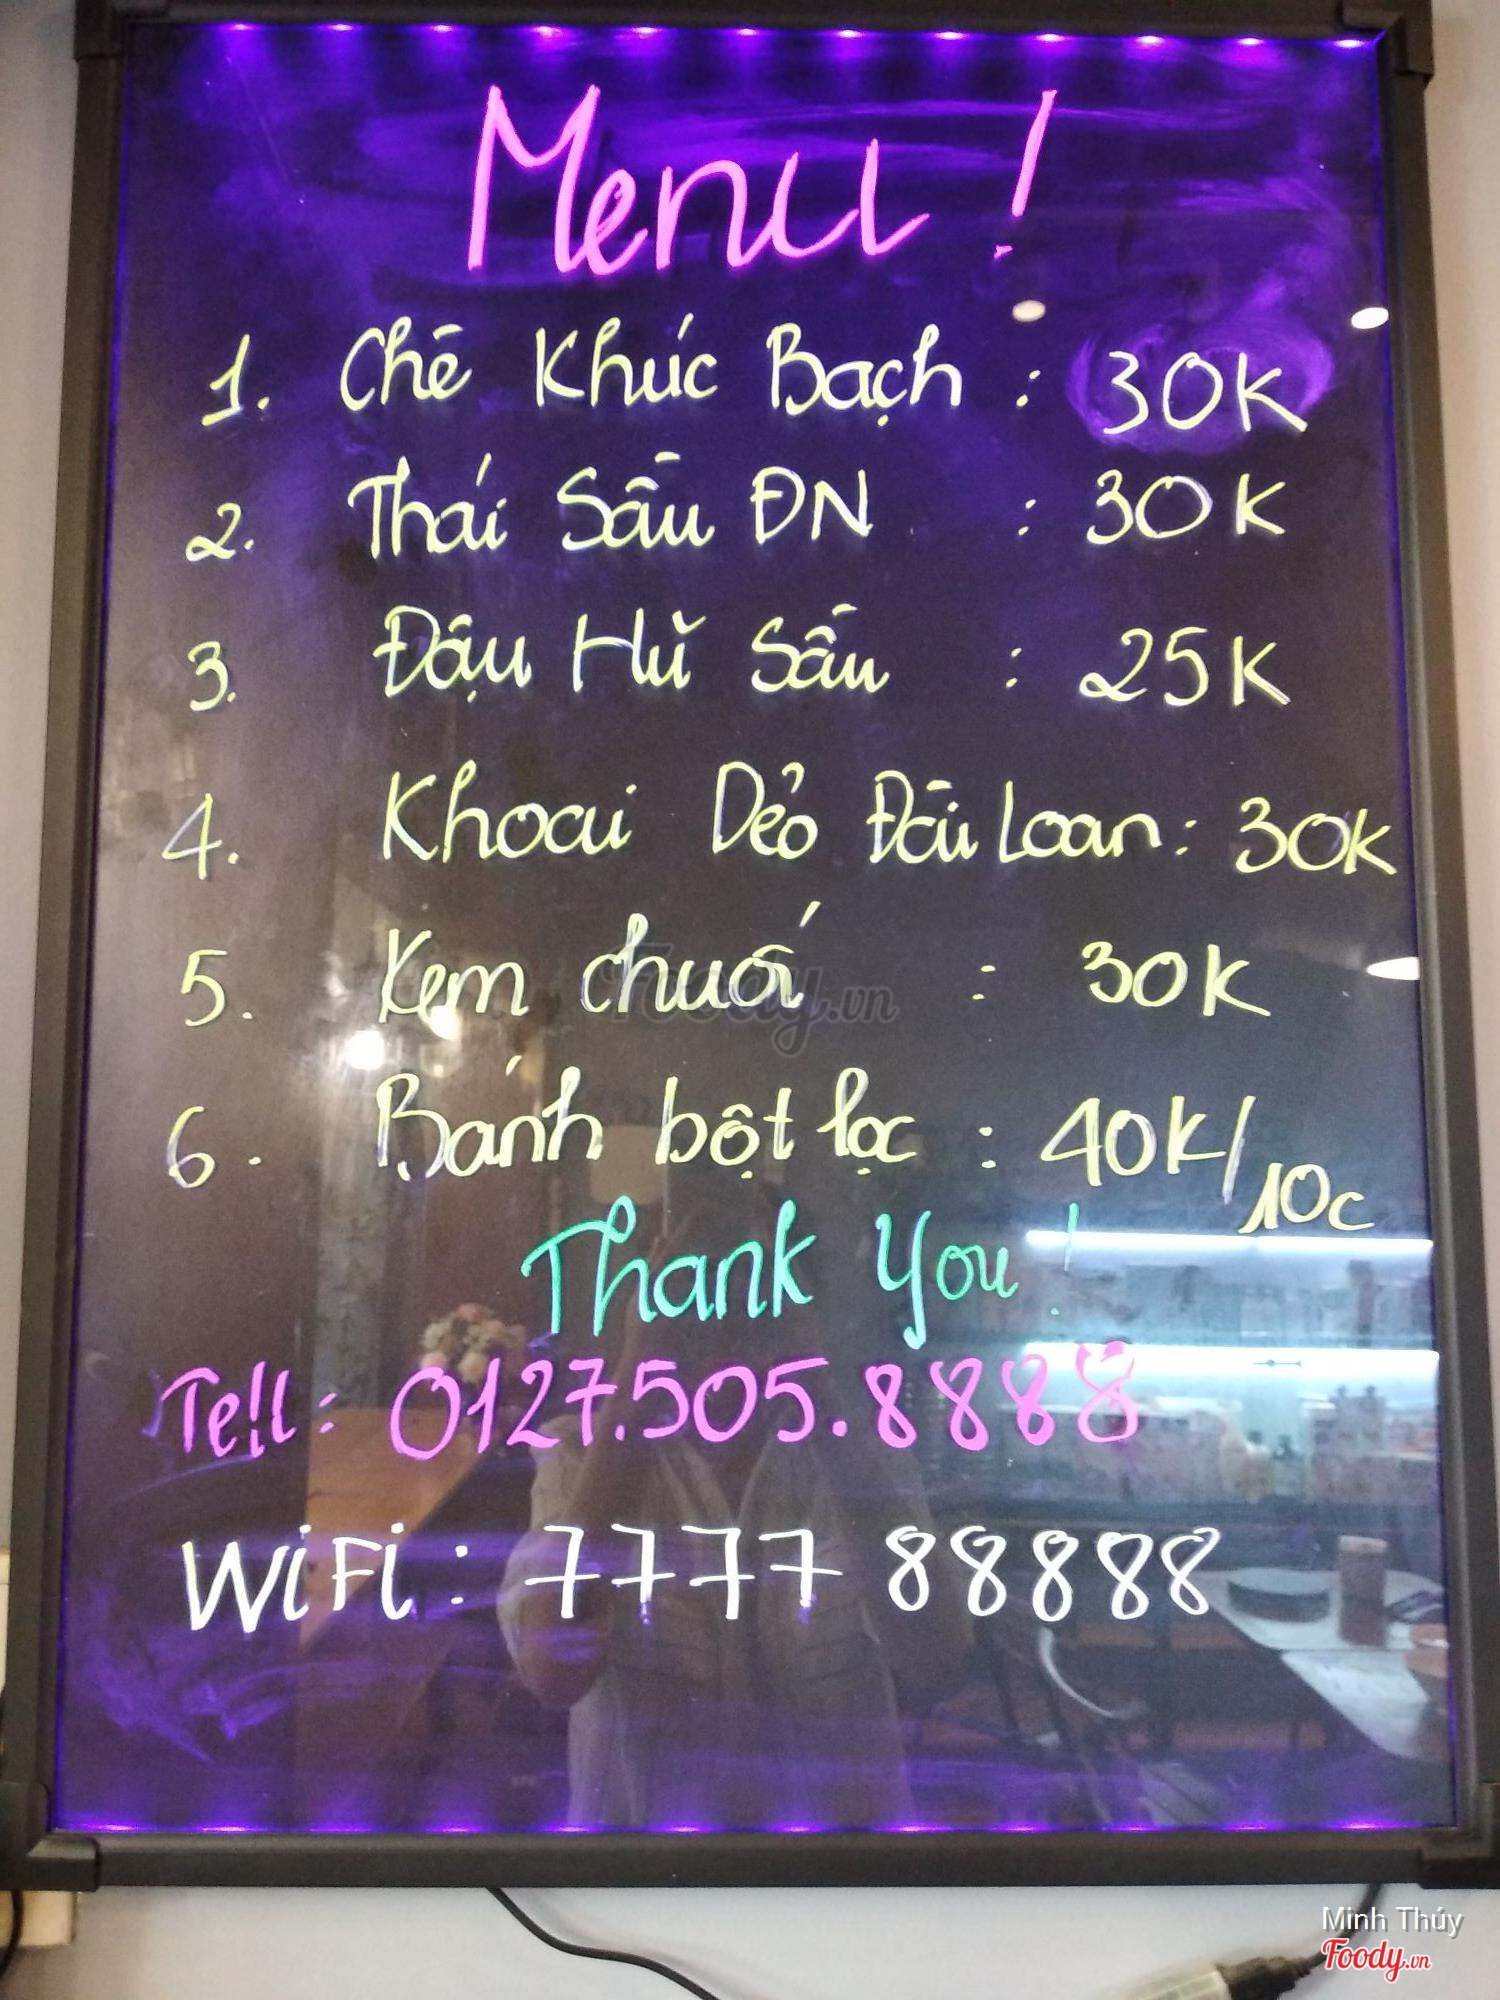 Menu !
1. Chè Khúc Bạch : 30K
2. Thái Sầu ĐN : 30K
3. Đậu Hũ Sầu : 25K
4. Khoai Dẻo Đài Loan : 30K
5. Kem chuối : 30K
6. Bánh bột lọc : 40K/10c
Thank You !
Tell : 0127.505.8888
WiFi : 7777 88888
Foody.vn
Minh Thúy
Foody.vn